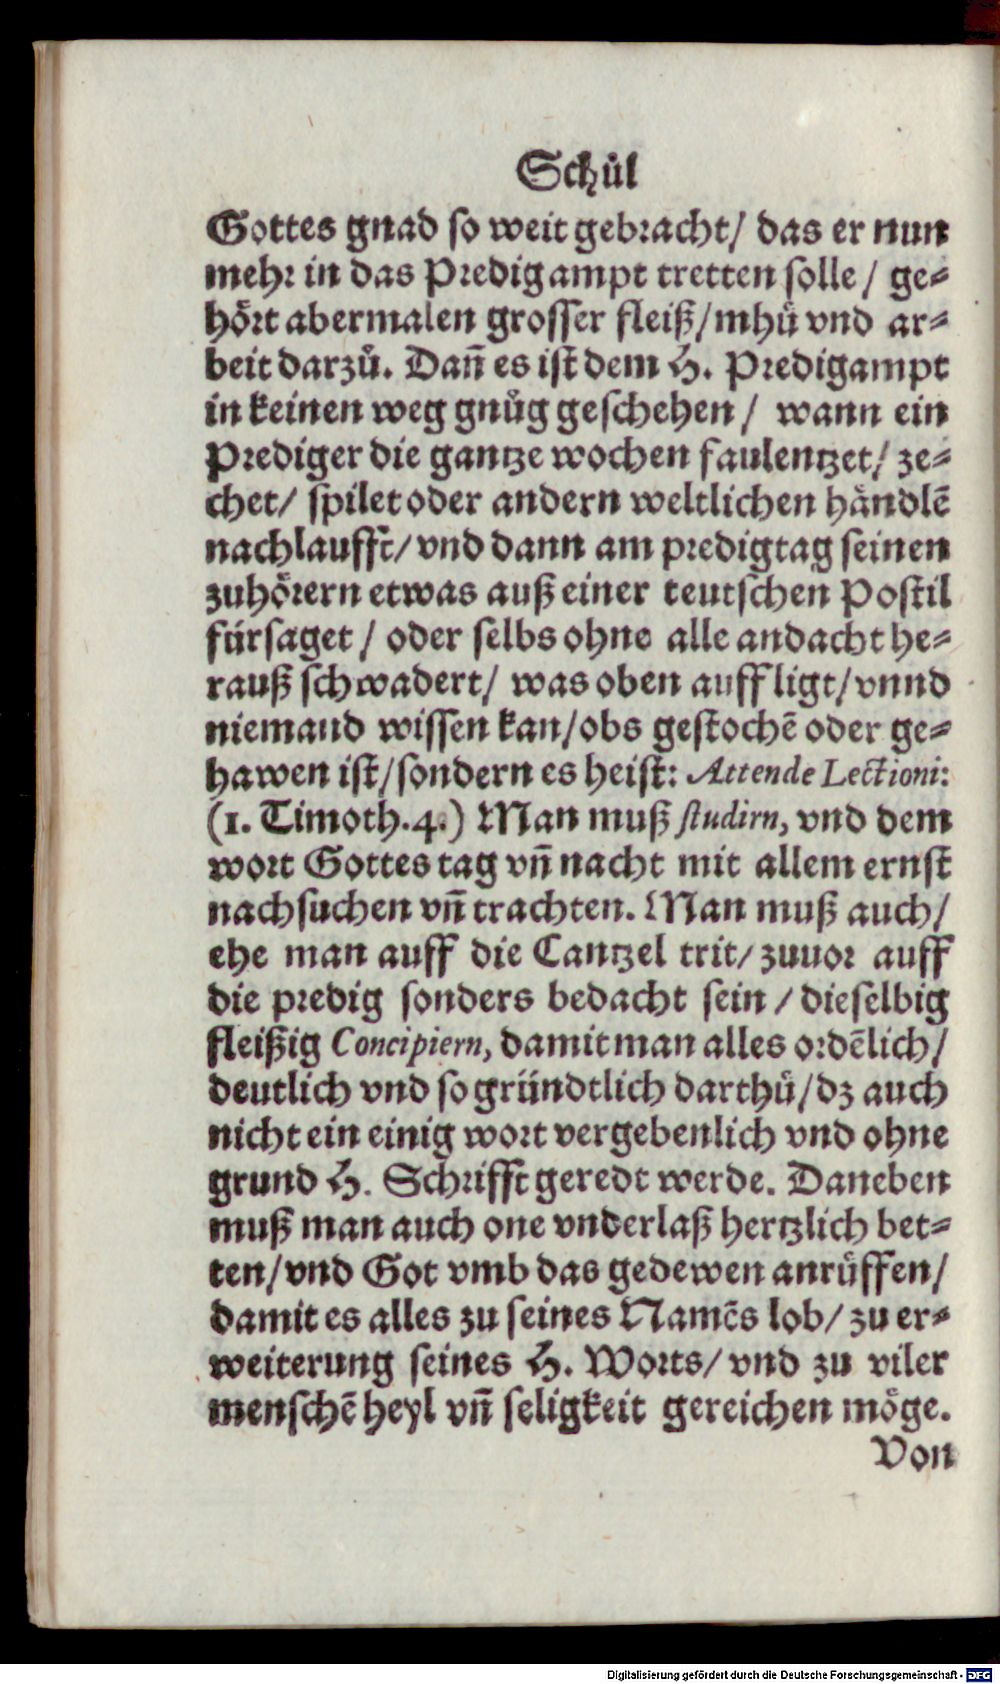 Schůl
Gottes gnad so weit gebracht/ das er nun
mehr in das Predigampt tretten solle/ ge⸗
hört abermalen grosser fleiß/mhů vnd ar⸗
beit darzů. Dañ es ist dem H. Predigampt
in keinen weg gnůg geschehen/ wann ein
Prediger die gantze wochen faulentzet/ ze⸗
chet/ spilet oder andern weltlichen händlē
nachlaufft/ vnd dann am predigtag seinen
zuhörern etwas auß einer teutschen Postil
fürsaget/ oder selbs ohne alle andacht he⸗
rauß schwadert/ was oben auff ligt/ vnnd
niemand wissen kan/obs gestochē oder ge⸗
hawen ist/sondern es heist: Attende Lectioni:
(1. Timoth.4.) Man muß studirn, vnd dem
wort Gottes tag vñ nacht mit allem ernst
nachsuchen vñ trachten. Man muß auch/
ehe man auff die Cantzel trit/ zuuor auff
die predig sonders bedacht sein/ dieselbig
fleißig Concipiern, damit man alles ordēlich/
deutlich vnd so gründtlich darthů/dz auch
nicht ein einig wort vergebenlich vnd ohne
grund H. Schrifft geredt werde. Daneben
muß man auch one vnderlaß hertzlich bet⸗
ten/vnd Got vmb das gedewen anrůffen/
damit es alles zu seines Namēs lob/ zu er⸗
weiterung seines H. Worts/ vnd zu viler
menschē heyl vñ seligkeit gereichen möge.
Von
Digitalisierung gefördert durch die Deutsche Forschungsgemeinschaft - DFG